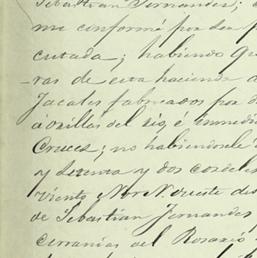 Sebastian Fernandes;
me conformé por ser p
cutada; habiendo que
ras de esta hacienda
Jacales fabricados por
á orillas del rio, é inmedi
Cruces; no habiendole
y setenta y dos cordeles
viento Nor Noroeste des
de Sebastian Fernandes
cerranias del Rosario